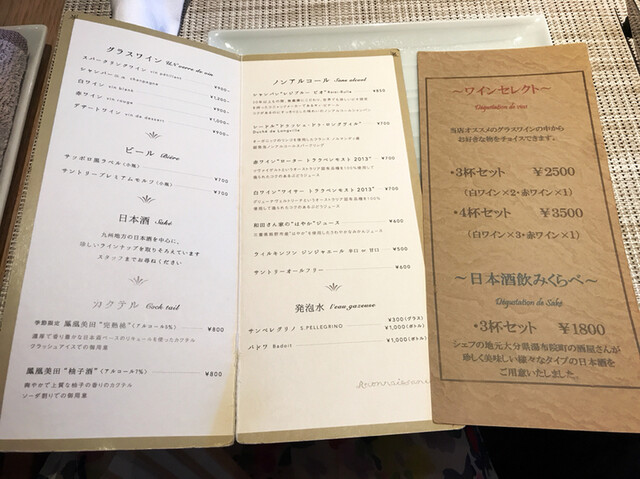 グラスワイン un verre de vin
スパークリングワイン vin pétillant ¥900~
シャンパーニュ champagne
白ワイン vin blanc
赤ワイン vin rouge
デザートワイン vin de dessert ¥900~
ビール Bière
サッポロ黒ラベル(小瓶) ¥700
サントリープレミアムモルツ(小瓶) ¥700
日本酒 Saké
九州地方の日本酒を中心に、
珍しいラインナップを取りそろえています
スタッフまでお尋ねください
カクテル Cock tail
季節限定 鳳凰美田 "完熟桃"(アルコール5%) ¥800
濃厚で香り豊かな日本酒ベースのリキュールを使ったカクテル
クラッシュアイスでの御用意
鳳凰美田 "柚子酒"(アルコール7%) ¥800
爽やかで上質な柚子の香りのカクテル
ソーダ割りでの御用意
ノンアルコール Sans alcool
¥850
¥700
オーガニックのシードルを使用したフランス ノルマンディ産
最高級ノンアルコールスパークリング
赤ワイン"ローター トラウベンモスト 2013" ¥700
使用して造られたコクのあるぶどうジュース
白ワイン"ヴァイサー トラウベンモスト 2013" ¥700
使用して造られたコクのあるぶどうジュース
和田さん家の"はやか"ジュース ¥600
ライルモンソン ジンジャエール 辛口 or 甘口 ¥500
サントリーオールフリー ¥600
発泡水 l'eau gazeuse
サンペレグリノ S.PELLEGRINO ¥300(グラス)
¥1,000(ボトル)
バドワ Badoit ¥1,000(ボトル)
~ワインセレクト~
Dégustation de vin
当店オススメのグラスワインの中から
お好きな物をチョイスできます。
・3杯セット ¥2500
(白ワイン×2・赤ワイン×1)
・4杯セット ¥3500
(白ワイン×3・赤ワイン×1)
~日本酒飲みくらべ~
Dégustation de Saké
・3杯セット ¥1800
シェフの地元大分県湯布院町の酒屋さんが
珍しく美味しい様々なタイプの日本酒を
ご用意いたしました。